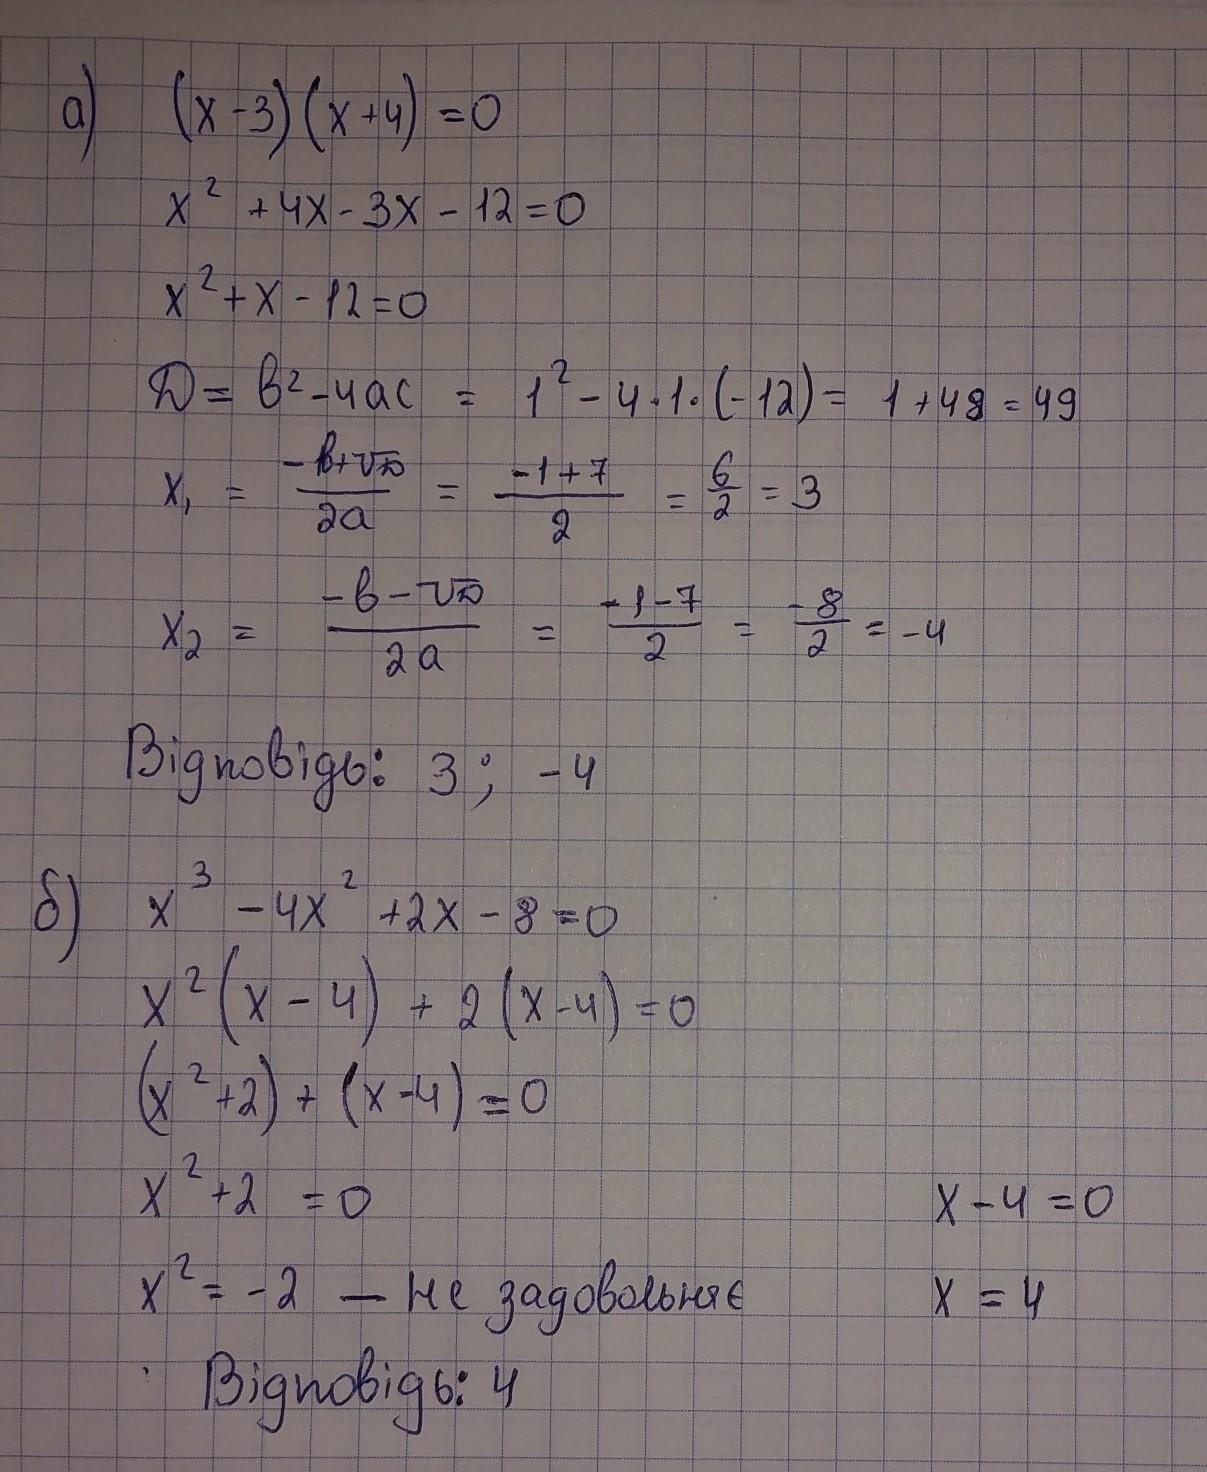 а) (x-3)(x+4)=0
x² +4x-3x-12=0
x²+x-12=0
D= b²-4ac = 1²-4·1·(-12)= 1+48=49
x₁ = (-b+√D)/2a = (-1+7)/2 = 6/2 = 3
x₂ = (-b-√D)/2a = (-1-7)/2 = -8/2 = -4
Відповідь: 3; -4
б) x³-4x²+2x-8=0
x²(x-4) + 2(x-4)=0
(x²+2)+(x-4)=0
x²+2 =0 x-4=0
x²= -2 — не задовольняє x=4
Відповідь: 4